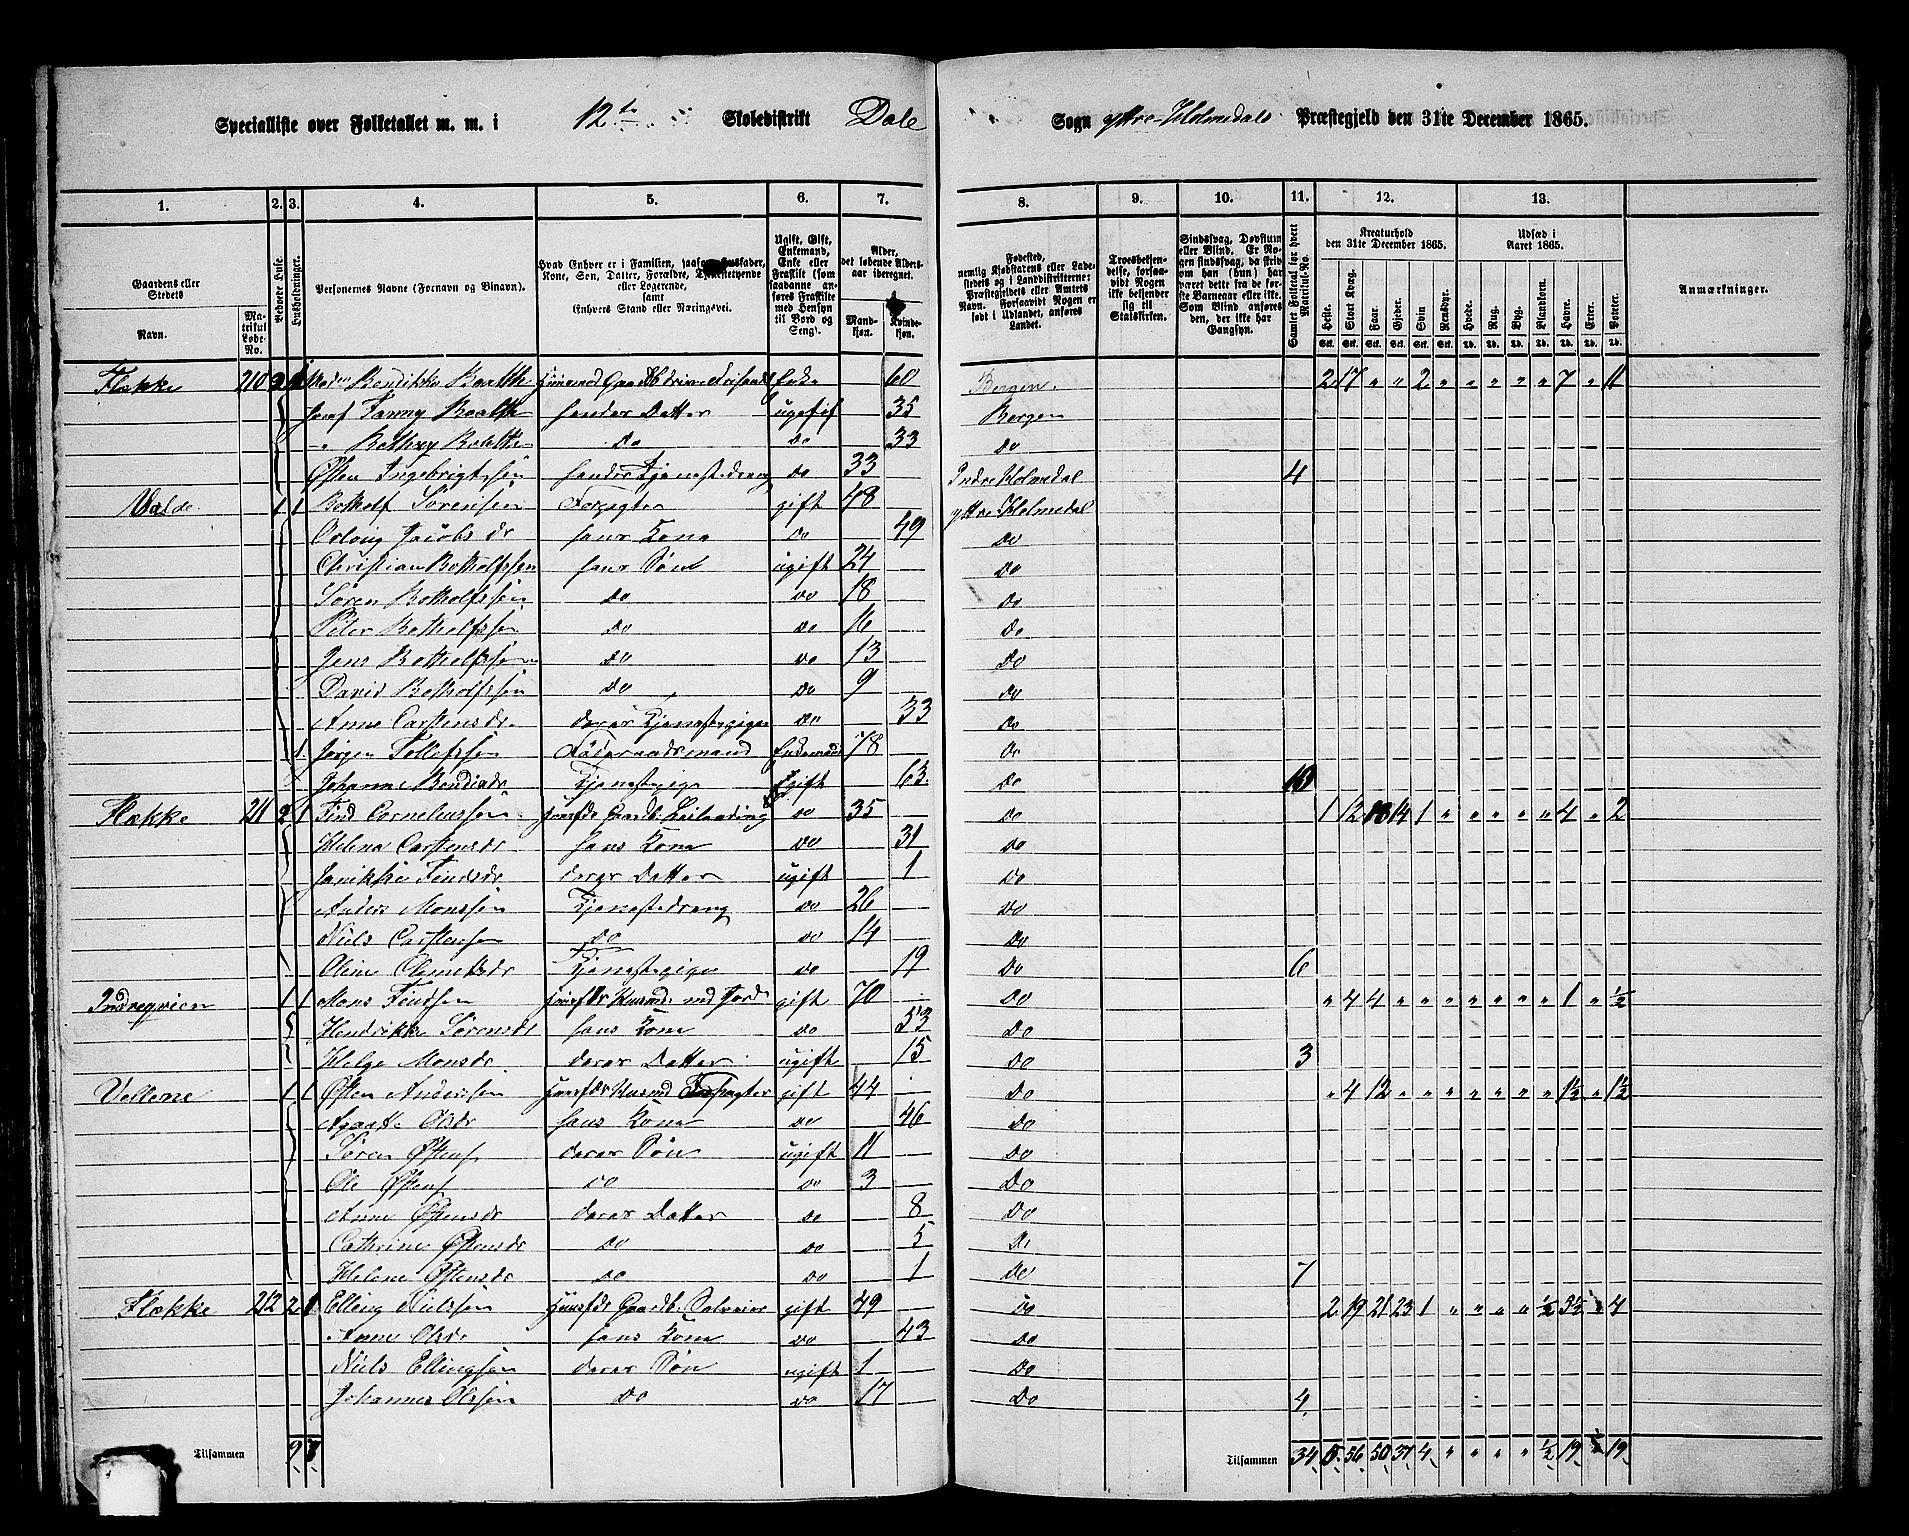 Specialliste over Folketallet m. m. i 12te Skoledistrikt Dale Sogn Yttre Holmedals Præstegjeld den 31te December 1865.
1. 2. 3. 4. 5. 6. 7. 8. 9. 10. 11. 12. 13.
Gaardens eller Stedets Navn. Matrikul Løbe-No. Beboede Huse. Husholdninger. Personernes Navne (Fornavn og Binavn).
Ugift, Gift, Enkemand, Enke eller Fraskilt (som saadanne anføres Fraskilte med Hensyn til Bord og Seng).
Alder, det løbende Aldersaar iberegnet. Mandkjøn. Kvindekjøn.
Troesbekjendelse, forsaavidt Nogen ikke bekjender sig til Statskirken.
Samlet Folketal for hvert Matrikul-No.
Kreaturhold den 31te December 1865. Heste. Stort Kvæg. Faar. Gjeder. Svin. Rensdyr.
Udsæd i Aaret 1865. Hvede. Rug. Byg. Blandkorn. Havre. Erter. Poteter.
Anmærkninger.
Flække 210 Bendikke Enke 60 Bergen 2 17 " " 2 " " " " " 7 " 11
Fanny hendes Datter ugift 35 Bergen
Do Do 33 Do
Østen Ingebrigtssen hendes Tjenestedreng Do 33 Indre Holmedal 4
Valde 1 1 Botholf Sørensen Forpagter gift 48 Yttre Holmedal
Jacobsdr hans Kone Do 49 Do
Christian Botholfssen hans Søn ugift 24 Do
Søren Botholfssen Do Do 18 Do
Peter Botholfssen Do Do 16 Do
Jens Botholfssen Do Do 13 Do
David Botholfssen Do Do 9 Do
Anne Carstensdr deres Tjenestepige Do 33 Do
1 Jørgen Tollefssen Føderaadsmand Enkemand 78 Do
Johanne Tjenestepige Ugift 63 Do 10
Flække 211 2 1 Find Cornelius­sen Do 35 Do 1 12 18 14 1 " " " " " 4 " 2
Helena Carstensdr hans Kone Do 31 Do
Findsdr deres Datter ugift 1 Do
Anders Monssen Tjenestedreng Do 26 Do
Niels Carstensen Do Do 14 Do
Oline Tjenestepige Do 19 Do 6
Indreqvien 1 1 Mons Findsen Huusfdr Husmd med Jord gift 70 Do " 4 4 " " " " " " " 1 " ½
Hendrikke Sørensdr hans Kone Do 53 Do
Helge Monsdr deres Datter ugift 15 Do 3
Vellene 1 1 Østen Andersen Huusfdr Husmd Forpagter gift 44 Do " 4 12 " " " " " " " 1½ " 1½
Agaatte Olsdr hans Kone Do 46 Do
Søren Østens deres Søn ugift 11 Do
Ole Østens Do Do 3 Do
Anne Østensdr deres Datter Do 8 Do
Cathrine Østensdr Do Do 5 Do
Helene Østensdr Do Do 1 Do 7
Flække 212 2 1 Elling Nielssen Huusfdr Gaardb. Selveier gift 49 Do 2 19 21 23 1 " " " " ½ 5½ 4
Anne Olsdr hans Kone Do 43 Do
Niels Ellingsen deres Søn ugift 1 Do
Johannes Olssen Do Do 17 Do 4
Tilsammen 9 7 Tilsammen 34 5 56 50 37 4 " " " " ½ 19 19